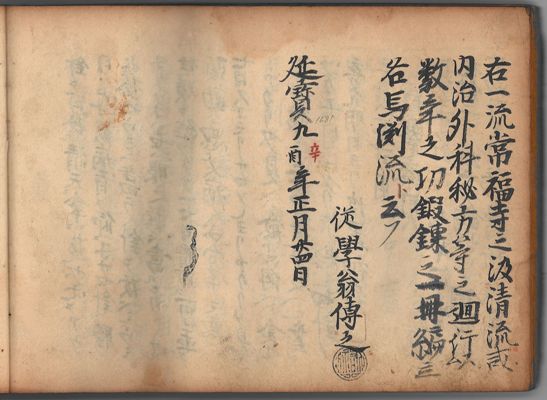 右一流常福寺之汲清流或
内治外科秘方等之廻行以
数年之功鍛錬之一冊編三
名馬渕流ト云フ
従學翁傳之
延寳九辛酉年正月廿四日
1681